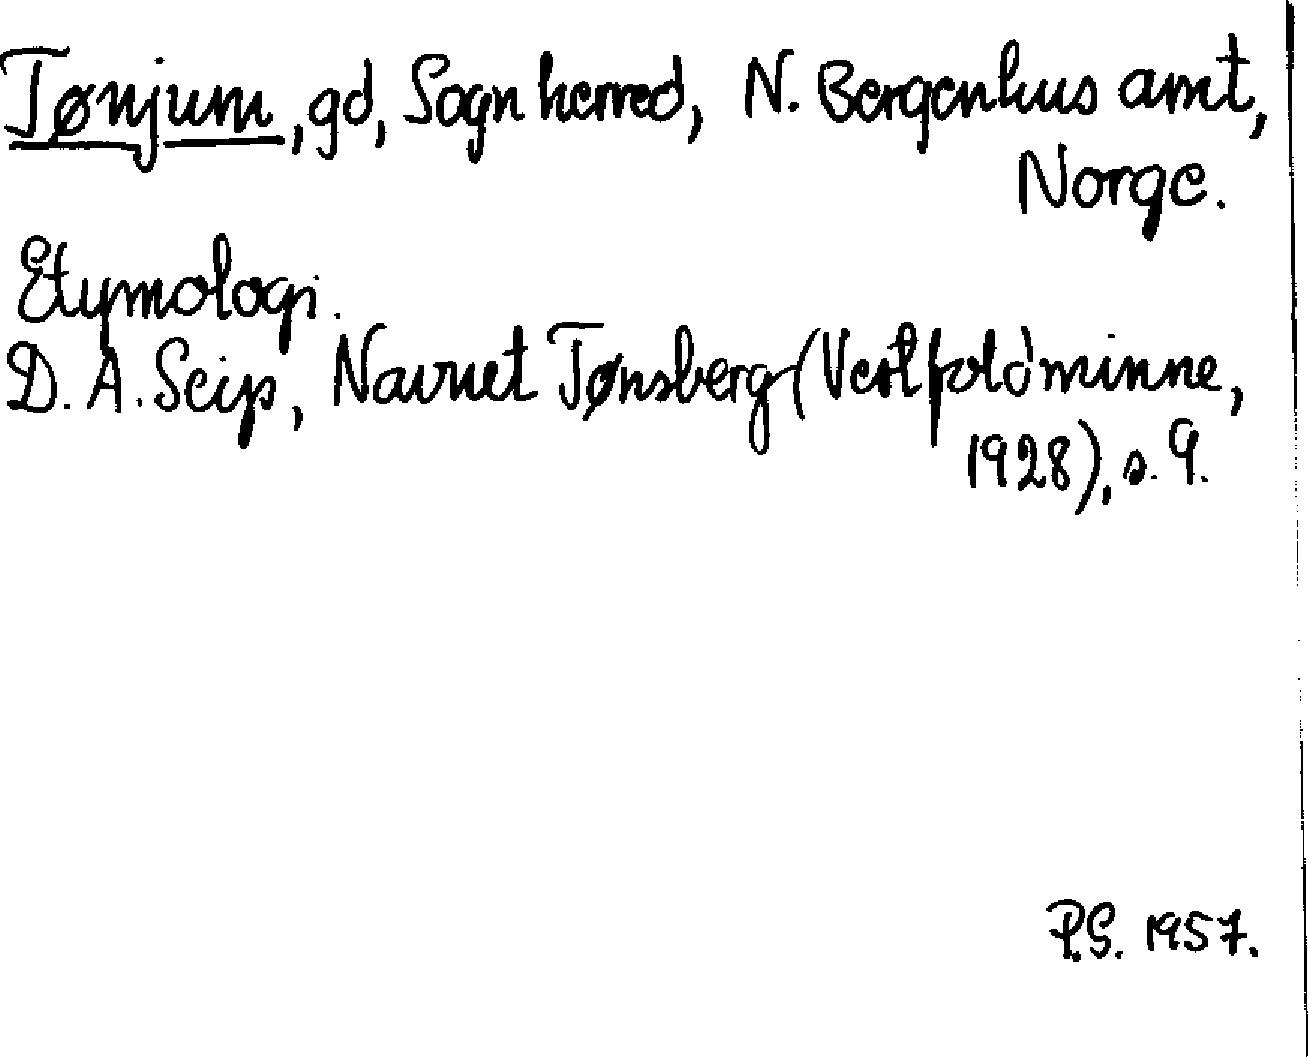 Tønjum, gd, Sogn herred, N. Bergenhus amt,
Norge.
Etymologi.
D. A. Seip, Navnet Tønsberg (Vestfoldminne,
1928), s. 9.
P.S. 1957.